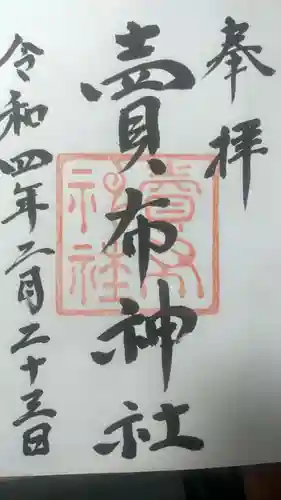 奉拝
賣布神社
令和四年二月二十三日